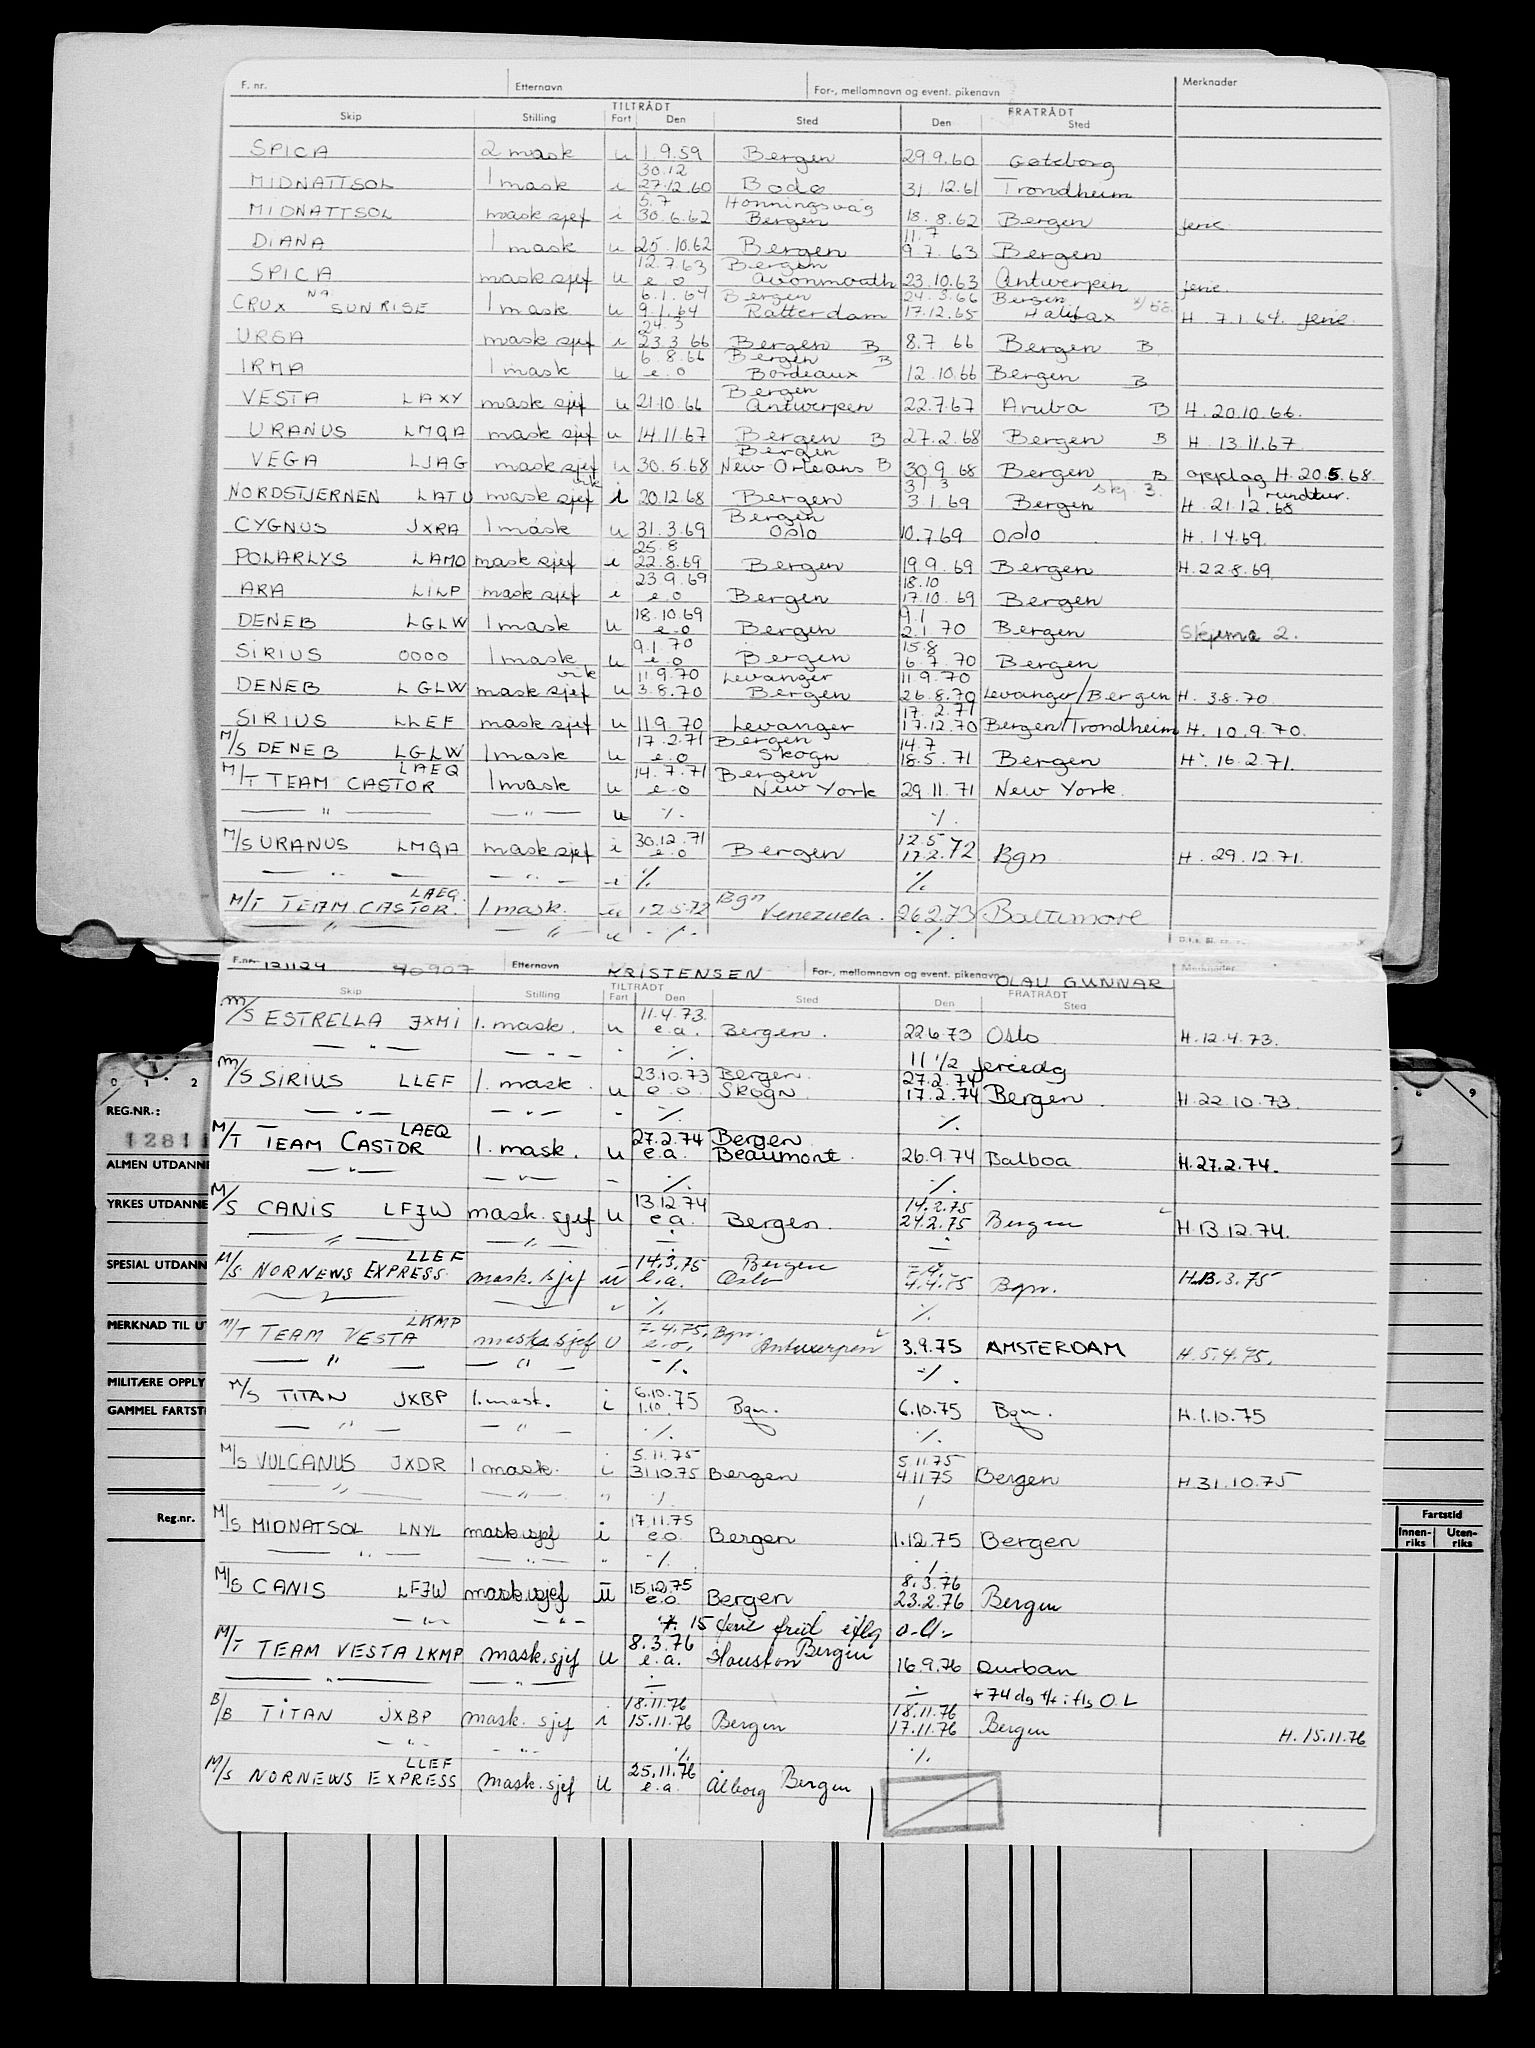 F. nr. Etternavn For-, mellomnavn og event. pikenavn Merknader
TILTRÅDT FRATRÅDT
Skip Stilling Fart Den Sted Den Sted
SPICA 2 mask u 1.9.59 Bergen 29.9.60 Gøteborg
30.12
MIDNATTSOL 1 mask i 27.12.60 Bodø 31.12.61 Trondheim
5.7 Honningsvåg
MIDNATTSOL mask sjef i 30.6.62 Bergen 18.8.62 Bergen ferie
11.7
DIANA 1 mask u 25.10.62 Bergen 9.7.63 Bergen
12.7.63 Bergen
SPICA mask sjef u e.o Avonmouth 23.10.63 Antwerpen ferie
6.1.64 Bergen 24.3.66 Bergen
CRUX NÅ SUNRISE 1 mask u 9.1.64 Rotterdam 17.12.65 Halifax H. 7.1.64. ferie
24.3
URSA mask sjef i 23.3.66 Bergen B 8.7.66 Bergen B
6.8.66 Bergen B
IRMA 1 mask u e.o Bordeaux 12.10.66 Bergen B
Bergen
VESTA LAXY mask sjef u 21.10.66 Antwerpen 22.7.67 Aruba B H. 20.10.66.
URANUS LMQA mask sjef u 14.11.67 Bergen B 27.2.68 Bergen B H. 13.11.67
Bergen
VEGA LJAG mask sjef u 30.5.68 New Orleans B 30.9.68 Bergen B oppdag H. 20.5.68.
vik 31.3 skj. 3. 1 rundtur.
NORDSTJERNEN LATU mask sjef i 20.12.68 Bergen 3.1.69 Bergen H. 21.12.68
Bergen
CYGNUS JXRA 1 mask u 31.3.69 Oslo 10.7.69 Oslo H. 1.4.69.
25.8
POLARLYS LAMO mask sjef i 22.8.69 Bergen 19.9.69 Bergen H. 22.8.69.
23.9.69 18.10
ARA LILP mask sjef i e.o Bergen 17.10.69 Bergen
18.10.69 9.1
DENEB LGLW 1 mask u e.o Bergen 2.1.70 Bergen Skjema 2.
9.1.70 15.8
SIRIUS 0000 1 mask u e.o Bergen 6.7.70 Bergen
vik 11.9.70 Levanger 11.9.70
DENEB LGLW mask sjef u 3.8.70 Bergen 26.8.70 Levanger/Bergen H. 3.8.70
17.2.71
SIRIUS LLEF mask sjef u 11.9.70 Levanger 17.12.70 Bergen/Trondheim H. 10.9.70.
17.2.71 Bergen 14.7
M/S DENEB LGLW 1 mask u e.o Skogn 18.5.71 Bergen H. 16.2.71.
LAEQ 14.7.71 Bergen
M/T TEAM CASTOR 1 mask u e.o New York 29.11.71 New York.
— " — — " — u ⁒ ⁒
30.12.71 12.5
M/S URANUS LMQA mask sjef i e.o Bergen 17.2.72 Bgn H. 29.12.71.
— " — — " — i ⁒ ⁒
LAEQ. Bgn
M/T TEAM CASTOR. 1 mask. u 12.5.72 Venezuela. 26.2.73 Baltimore
— " — — " — u ⁒ ⁒
F.nr. 121124 90907 Etternavn KRISTENSEN For-, mellomnavn og event. pikenavn OLAU GUNNAR Merknader
TILTRÅDT FRATRÅDT
Skip Stilling Fart Den Sted Den Sted
11.4.73.
M/S ESTRELLA JXMI 1. mask. u e.a. Bergen. 22.6.73 Oslo H. 12.4.73.
— " — — " — ⁒ 11 1/2 feriedg
23.10.73 Bergen. 27.2.74
M/S SIRIUS LLEF 1. mask. u e.o. Skogn 17.2.74 Bergen. H. 22.10.73.
— " — — " — ⁒ ⁒
LAEQ 27.2.74 Bergen
M/T TEAM CASTOR 1. mask. u e.a. Beaumont. 26.9.74 Balboa H. 27.2.74.
— " — — " — ⁒ ⁒
13.12.74 14.2.75
M/S CANIS LFJW mask. sjef u e.a. Bergen. 24.2.75 Bergen H. 13.12.74.
— " — — " — ÷ ÷
LLEF 14.3.75 Bergen 7.4.
M/S NORNEWS EXPRESS. mask. sjef u e.a. Oslo 4.4.75 Bgn. H. 13.3.75
⁒ ⁒
LKMP 7.4.75, Bgn.
M/T TEAM VESTA mask.sjef u e.o. Antwerpen 3.9.75 AMSTERDAM H. 5.4.75.
— " — — " — ⁒ ⁒
6.10.
M/S TITAN JXBP 1. mask. i 1.10.75 Bgn. 6.10.75 Bgn. H. 1.10.75
— " — — " — ⁒ ⁒
5.11.75 5.11.75
M/S VULCANUS JXDR 1 mask. i 31.10.75 Bergen 4.11.75 Bergen H. 31.10.75
— " — — " — "
17.11.75
M/S MIDNATSOL LNYL mask.sjef i e.o Bergen 1.12.75 Bergen
— " — — " — " ⁒ ⁒
15.12.75 8.3.76
M/S CANIS LFJW mask.sjef u e.o. Bergen 23.2.76 Bergen
— " — — " — ⁒ 15
8.3.76 Bergen
M/T TEAM VESTA LKMP mask.sjef u e.a. Houston 16.9.76 Durban
— " — — " — ÷ ÷ + 74 dg
18.11.76 18.11.76
B/B TITAN JXBP mask. sjef i 15.11.76 Bergen 17.11.76 Bergen H. 15.11.76
— " — — " — ⁒ ⁒
LLEF 25.11.76
M/S NORNEWS EXPRESS mask. sjef u e.a. Ålborg Bergen
0 1 2 9
REG.NR.:
ALMEN UTDANNE
YRKES UTDANNE
SPESIAL UTDANN
MERKNAD TIL U
MILITÆRE OPPLY
GAMMEL FARTST
Reg.nr. Fartstid
Innen-riks Uten-riks